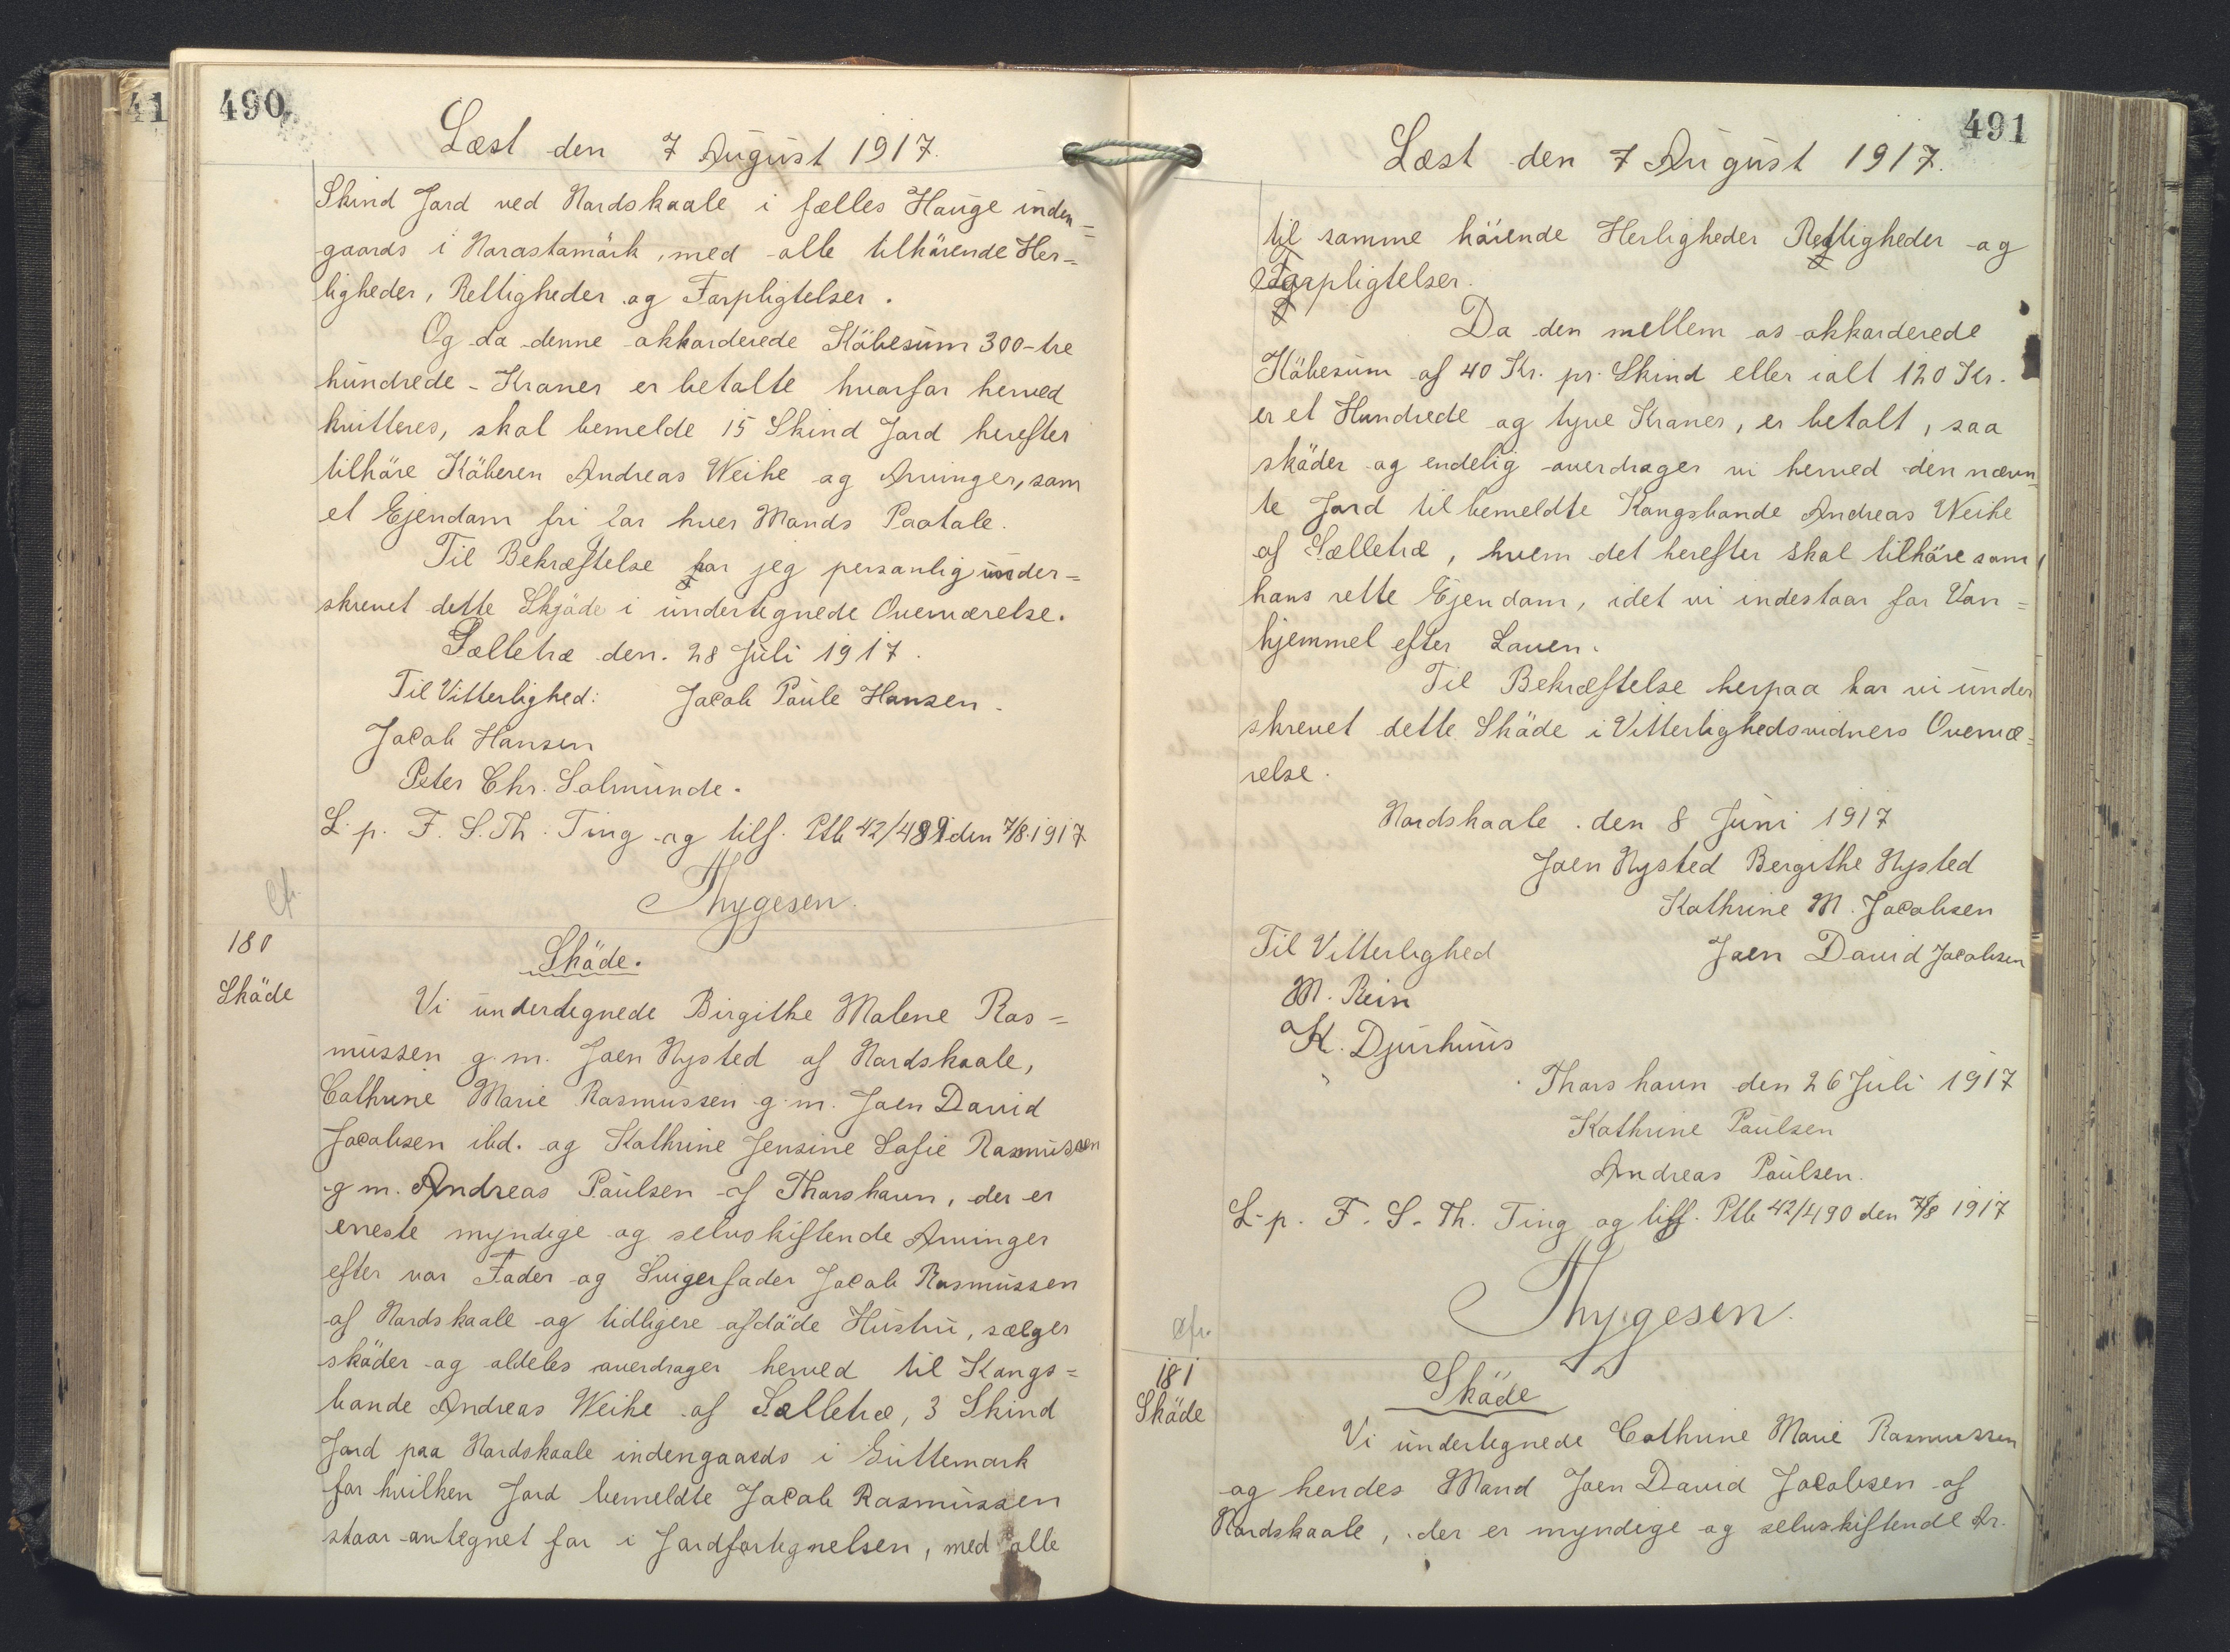 41
490
Læst den 7 August 1917.
Skind Jord ved Nordskaale i fælles Hauge inden=
gaards i Norastamörk, med alle tilhörende Her=
ligheder, Rettigheder og Forpligtelser.
Og da denne akkorderede Köbesum 300 - tre
hundrede - Kroner er betalte hvorfor herved
kvitteres, skal bemelde 15 Skind Jord herefter
tilhöre Köberen Andreas Weihe og Arvinger, som
et Ejendom fri for hver Mands Paatale.
Til Bekræftelse har jeg personlig under=
skrevet dette Skjöde i undertegnede Overværelse.
Sælletræ den. 28 Juli 1917.
Til Vitterlighed: Jacob Paule Hansen.
Jacob Hansen
Peter Chr. Salmunde.
L. p. F. S. Th. Ting og tilf. Ptb 42/489 den 7/8 1917
Thygesen.
cfr.
180
Sköde
Sköde.
Vi undertegnede Birgithe Malene Ras=
mussen g. m. Joen Nysted af Nordskaale,
Cathrine Marie Rasmussen g. m. Joen David
Jacobsen ibd. og Kathrine Jensine Sofie Rasmussen
g m. Andreas Paulsen af Thorshavn, der er
eneste myndige og selvskiftende Arvinger
efter vor Fader og Svigerfader Jacob Rasmussen
af Nordskaale og tidligere afdöde Hustru, sælger
sköder og aldeles overdrager herved til Kongs=
bonde Andreas Weihe af Sælletræ, 3 Skind
Jord paa Nordskaale indengaards i Guttemark
for hvilken Jord bemeldte Jacob Rasmussen
staar antegnet for i Jordfortegnelsen, med alle
491
Læst den 7 August 1917.
til samme hörende Herligheder Rettigheder og
Forpligtelser.
Da den mellem os akkorderede
Köbesum af 40 Kr. pr. Skind eller ialt 120 Kr.
er et Hundrede og tyve Kroner, er betalt, saa
sköder og endelig overdrager vi herved den nævn=
te Jord til bemeldte Kongsbonde Andreas Weihe
af Sælletræ, hvem det herefter skal tilhöre som
hans rette Ejendom, idet vi indestaar for Van=
hjemmel efter Loven.
Til Bekræftelse herpaa har vi under
skrevet dette Sköde i Vitterlighedsvidners Overvæ=
relse.
Nordskaale. den 8 Juni 1917
Joen Nysted Bergithe Nysted
Kathrine M. Jacobsen
Til Vitterlighed Joen David Jacobsen
M. Rein
K. Djurhuus
Thorshavn den 26 Juli 1917
Kathrine Paulsen
Andreas Paulsen.
L. p. F. S. Th. Ting og tilf. Ptb 42/490 den 7/8 1917
Thygesen.
cfr.
181
Sköde
Sköde
Vi undertegnede Cathrine Marie Rasmussen
og hendes Mand Joen David Jacobsen af
Nordskaale, der er myndige og selvskiftende Ar.